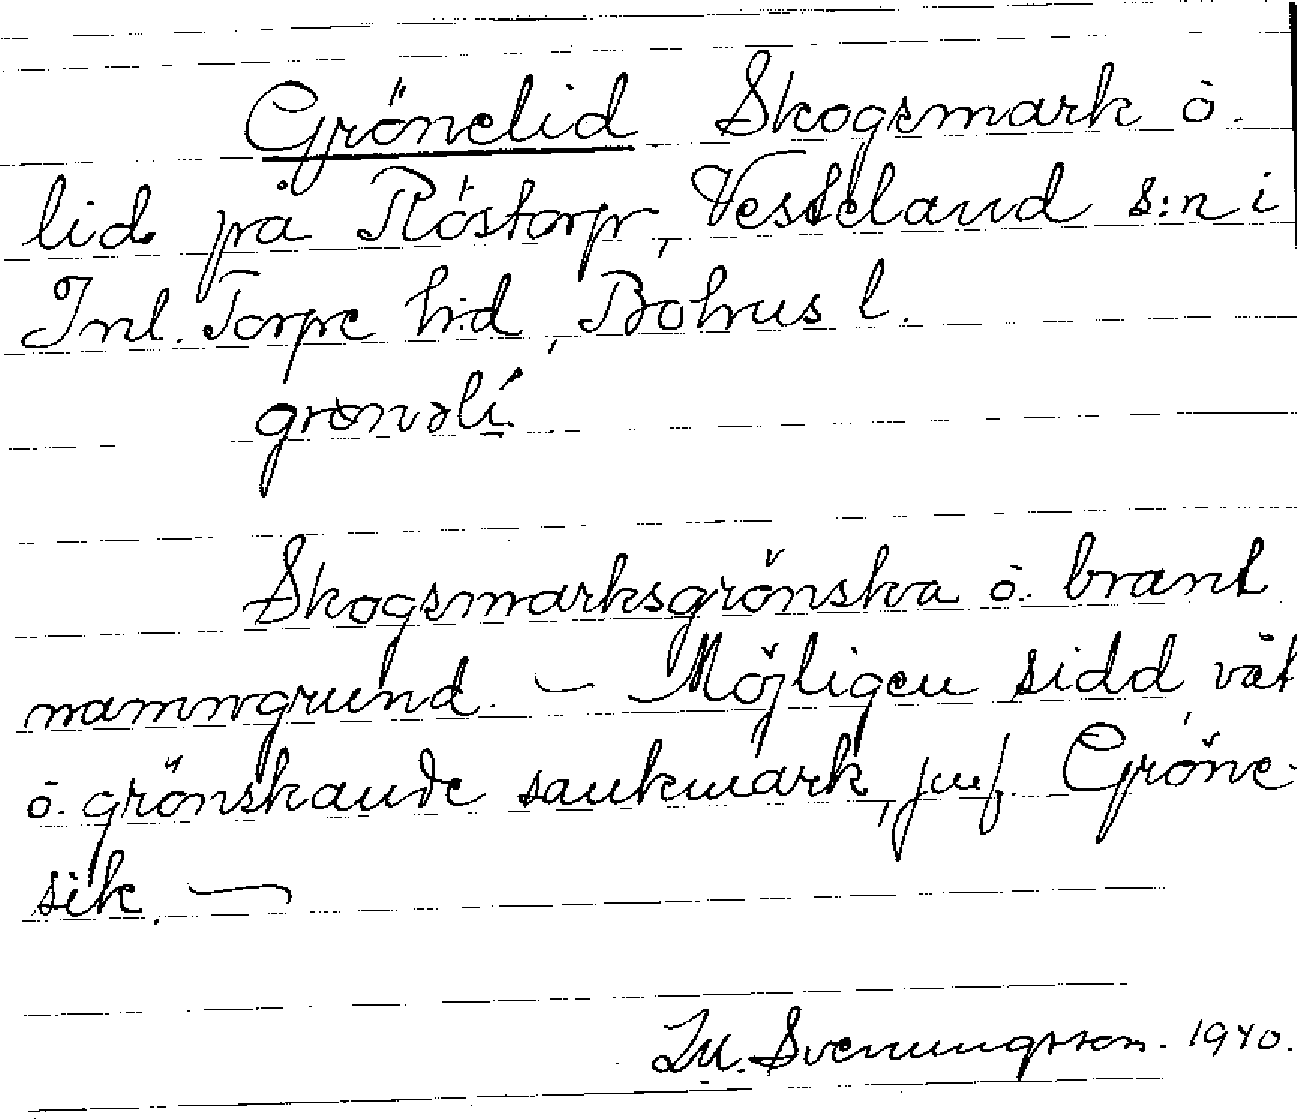 Grönelid Skogsmark ö.
lid på Röstorp, Vesterland s:n i
Inl. Torpe h:d, Bohus l.
grønəlí.
Skogsmarksgrönska ö. brant
namngrund. — Möjligen sidd, våt
ö. grönskande sankmark, jmf. Gröne-
sik. —
Im. Svenungsson. 1940.